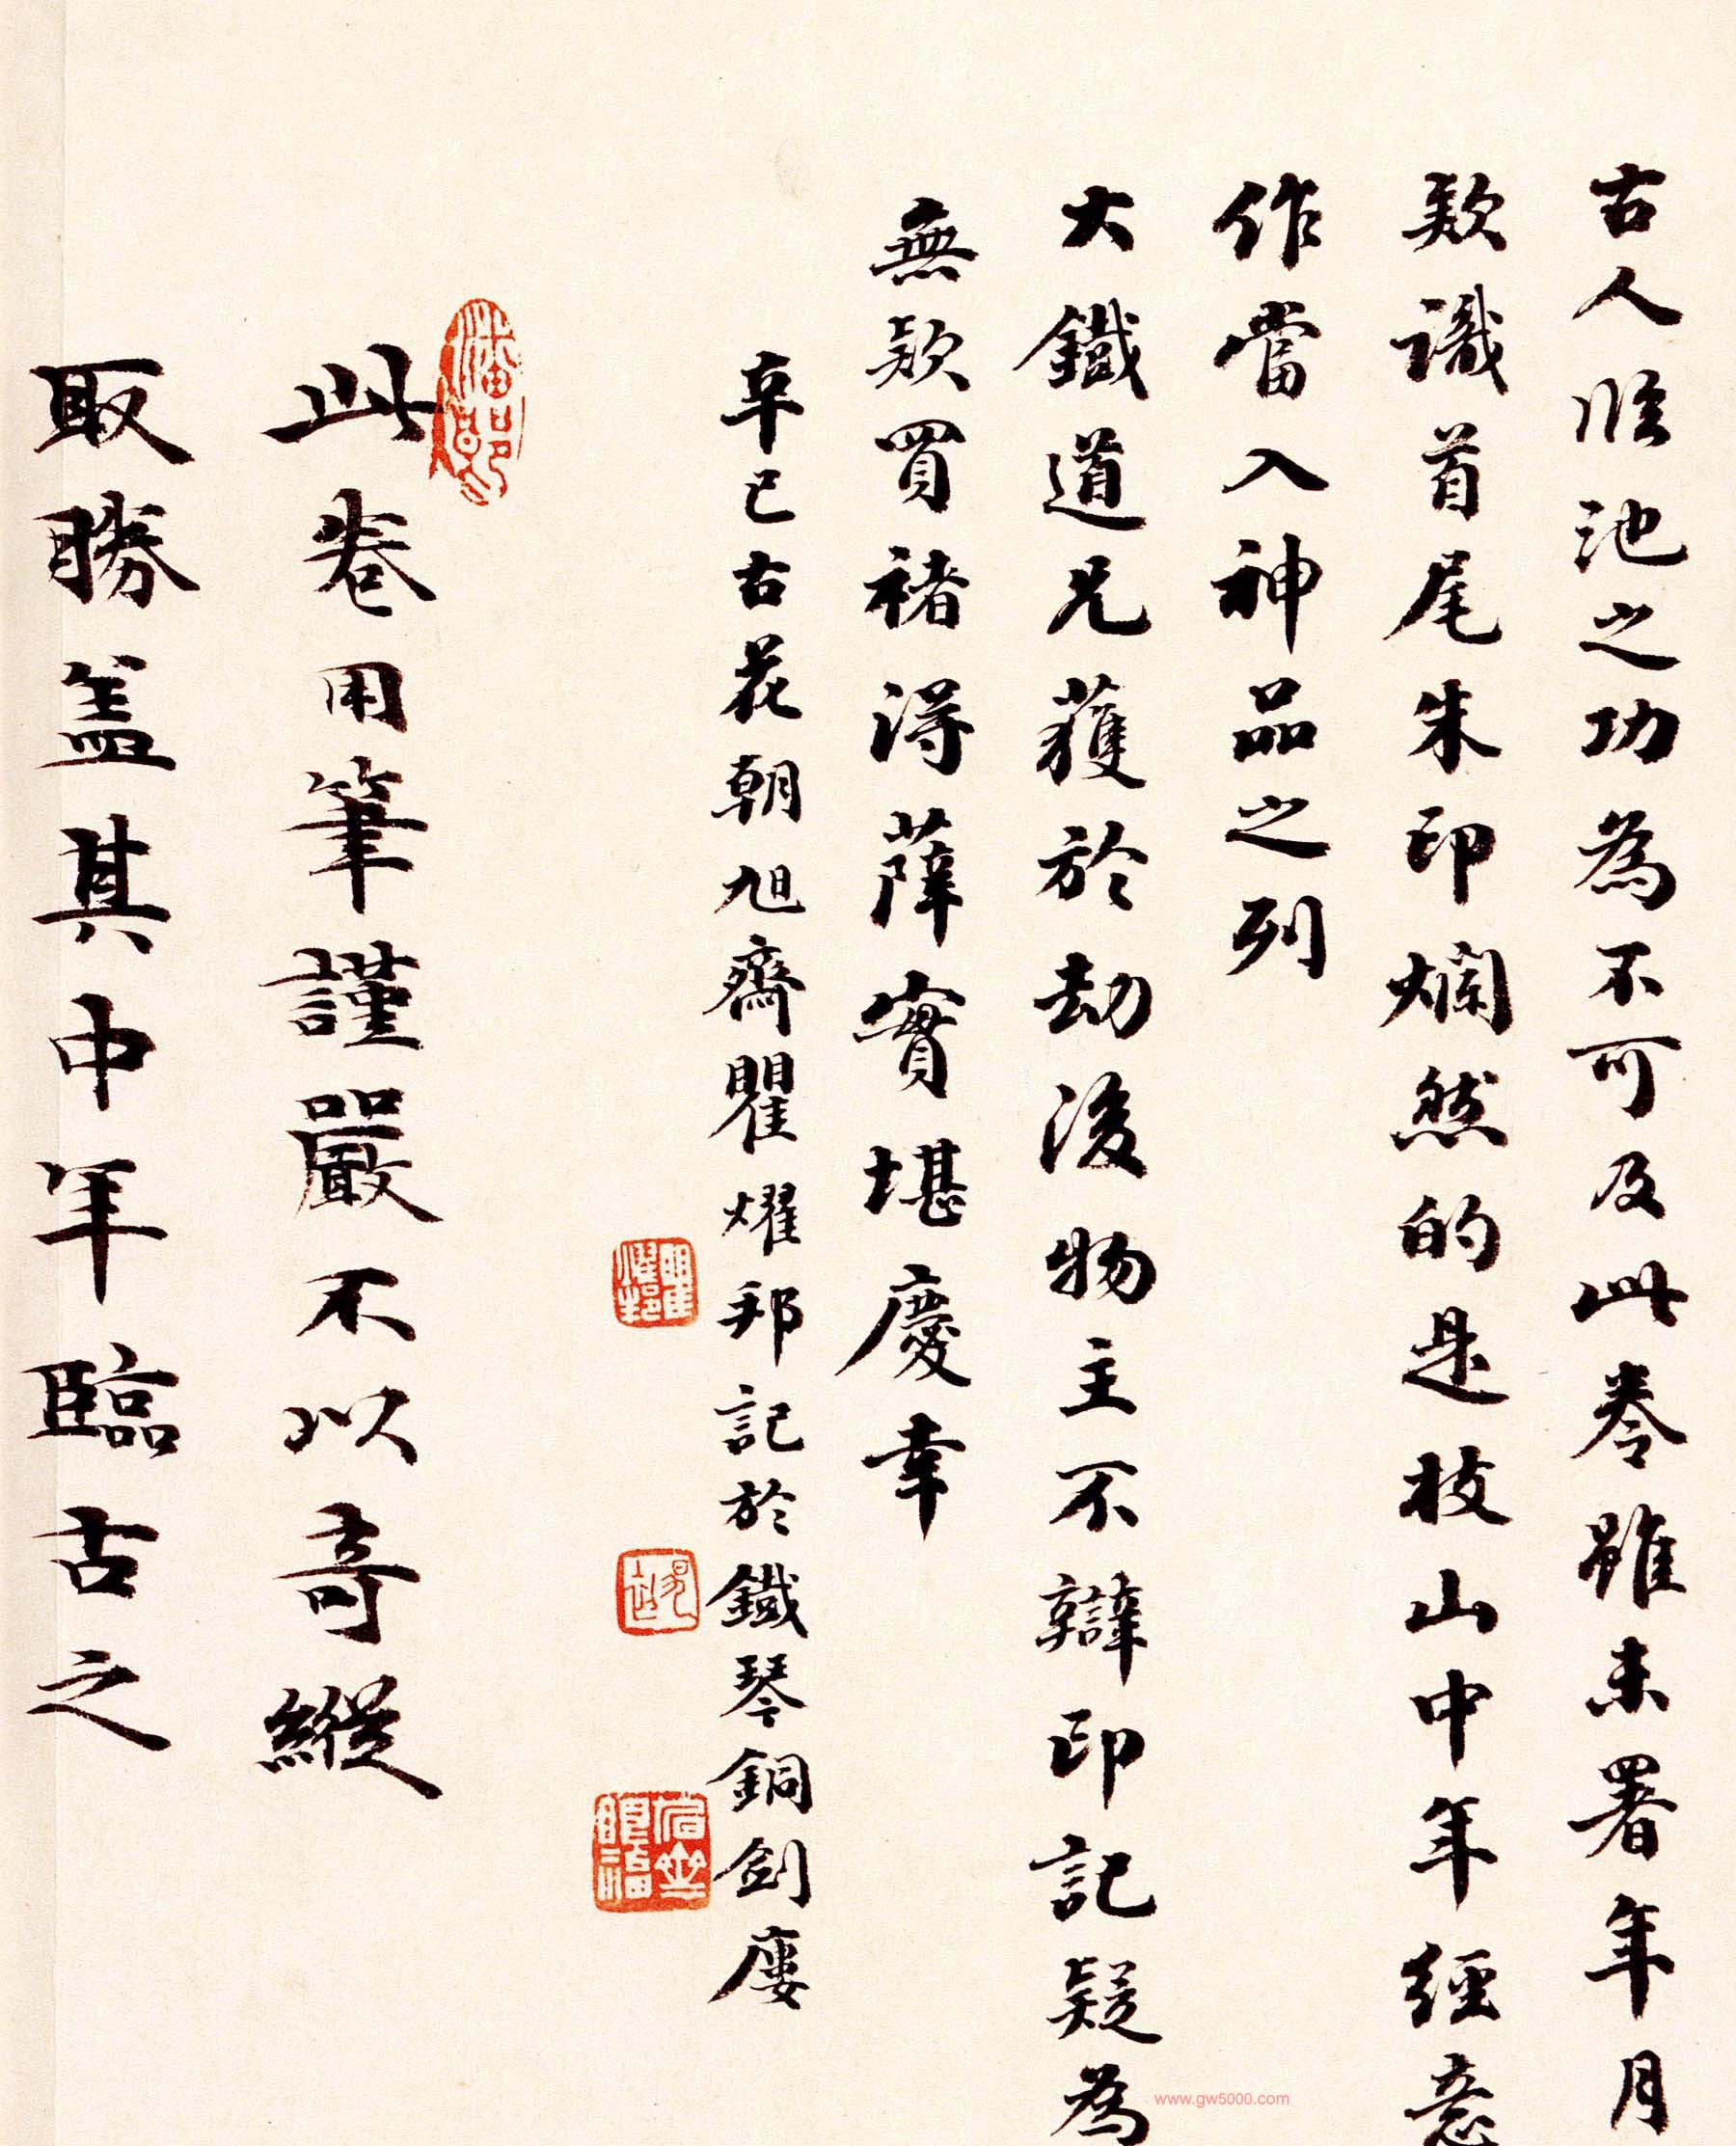 古人臨池之功為不可及此卷雖未署年月
款識首尾朱印爛然的是枝山中年經意
作當入神品之列
大鐵道兄獲於劫後物主不辯印記疑為
無款買褚得薛實堪慶幸
辛巳古花朝旭齋瞿燿邦記於鐵琴銅劍廔
此卷用筆謹嚴不以奇縱
取勝蓋其中年臨古之
www.gw5000.com